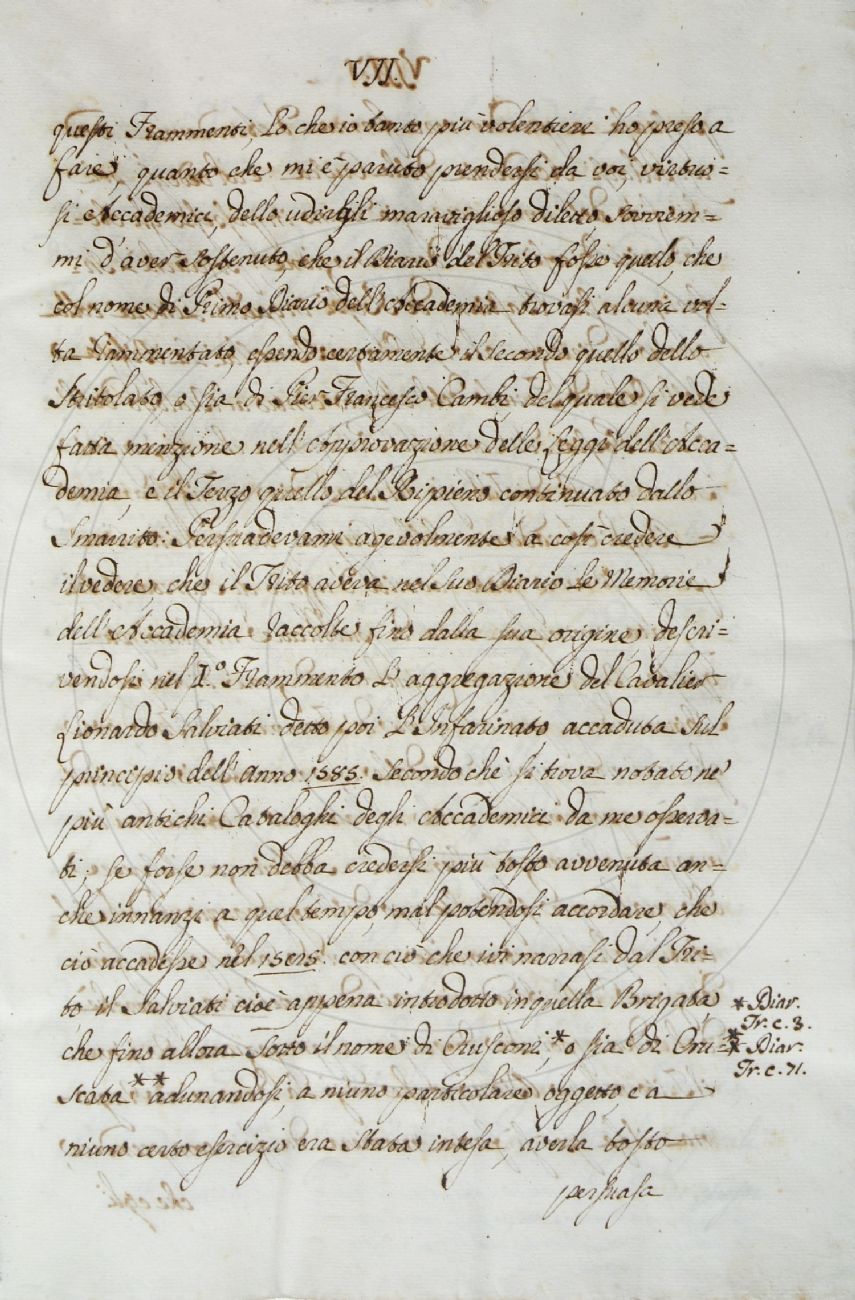 VII.
questi Frammenti, Lo che io tanto più volentieri ho preso a
fare, quanto che mi è paruto prendersi da voi, virtuo=
si Accademici, dello udirgli maraviglioso diletto. Sovvem=
mi d'aver sostenuto, che il Diario del Trito fosse quello, che
col nome di Primo Diario dell'Accademia trovasi alcuna vol=
ta rammentato, essendo certamente il secondo quello dello
Stritolato, o sia di Pier Francesco Cambi, del quale si vede
fatta menzione nell'Approvazione delle Leggi dell'Acca=
demia, e il Terzo quello del Ripieno continuato dallo
Smarrito: Persuadevami agevolmente a così credere
il vedere, che il Trito aveva nel suo Diario Le Memorie
dell'Accademia raccolte fino dalla sua origine, descri=
vendosi nel I.º Frammento L'aggregazione del Cavalier
Lionardo Salviati detto poi L'Infarinato accaduta sul
principio dell'anno 1585. secondo chè si trova notato ne'
più antichi Cataloghi degli Accademici da me osserva=
ti, se forse non debba credersi più tosto avvenuta an=
che innanzi a quel tempo, mal potendosi accordare, che
ciò accadesse nel 1585. con ciò che ivi narrasi dal Tri=
to il Salviati cioè appena introdotto in quella Brigata,
che fino allora sotto il nome di Crusconi,* o sia di Cru=
scata** adunandosi, a niuno particolare oggetto, e a
niuno certo esercizio era stata intesa, averla tosto
persuasa
* Diar.
Tr. c. 3.
** Diar.
Tr. c. 71.